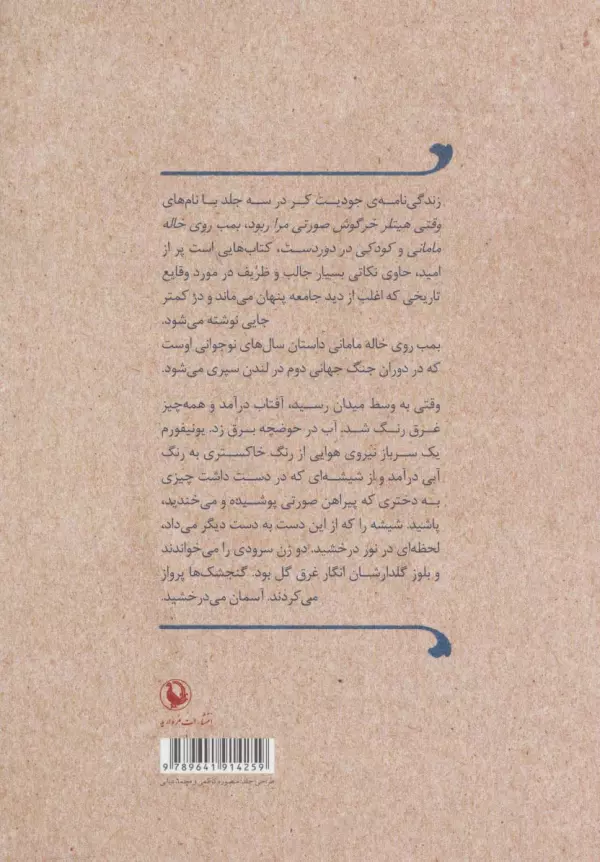 زندگی‌نامه‌ی جودیت کر در سه جلد با نام‌های
وقتی هیتلر خرگوش صورتی مرا ربود، بمب روی خاله
مامانی و کودکی در دوردست، کتاب‌هایی است پر از
امید، حاوی نکاتی بسیار جالب و ظریف در مورد وقایع
تاریخی که اغلب از دید جامعه پنهان می‌ماند و در کمتر
جایی نوشته می‌شود.
بمب روی خاله مامانی داستان سال‌های نوجوانی اوست
که در دوران جنگ جهانی دوم در لندن سپری می‌شود.
وقتی به وسط میدان رسید، آفتاب درآمد و همه‌چیز
غرق رنگ شد. آب در حوضچه برق زد. یونیفورم
یک سرباز نیروی هوایی از رنگ خاکستری به رنگ
آبی درآمد و از شیشه‌ای که در دست داشت چیزی
به دختری که پیراهن صورتی پوشیده و می‌خندید،
پاشید. شیشه را که از این دست به دست دیگر می‌داد،
لحظه‌ای در نور درخشید. دو زن سرودی را می‌خواندند
و بلوز گلدارشان انگار غرق گل بود. گنجشک‌ها پرواز
می‌کردند. آسمان می‌درخشید.
انتشارات مروارید
9 789641 914259
طراحی جلد: